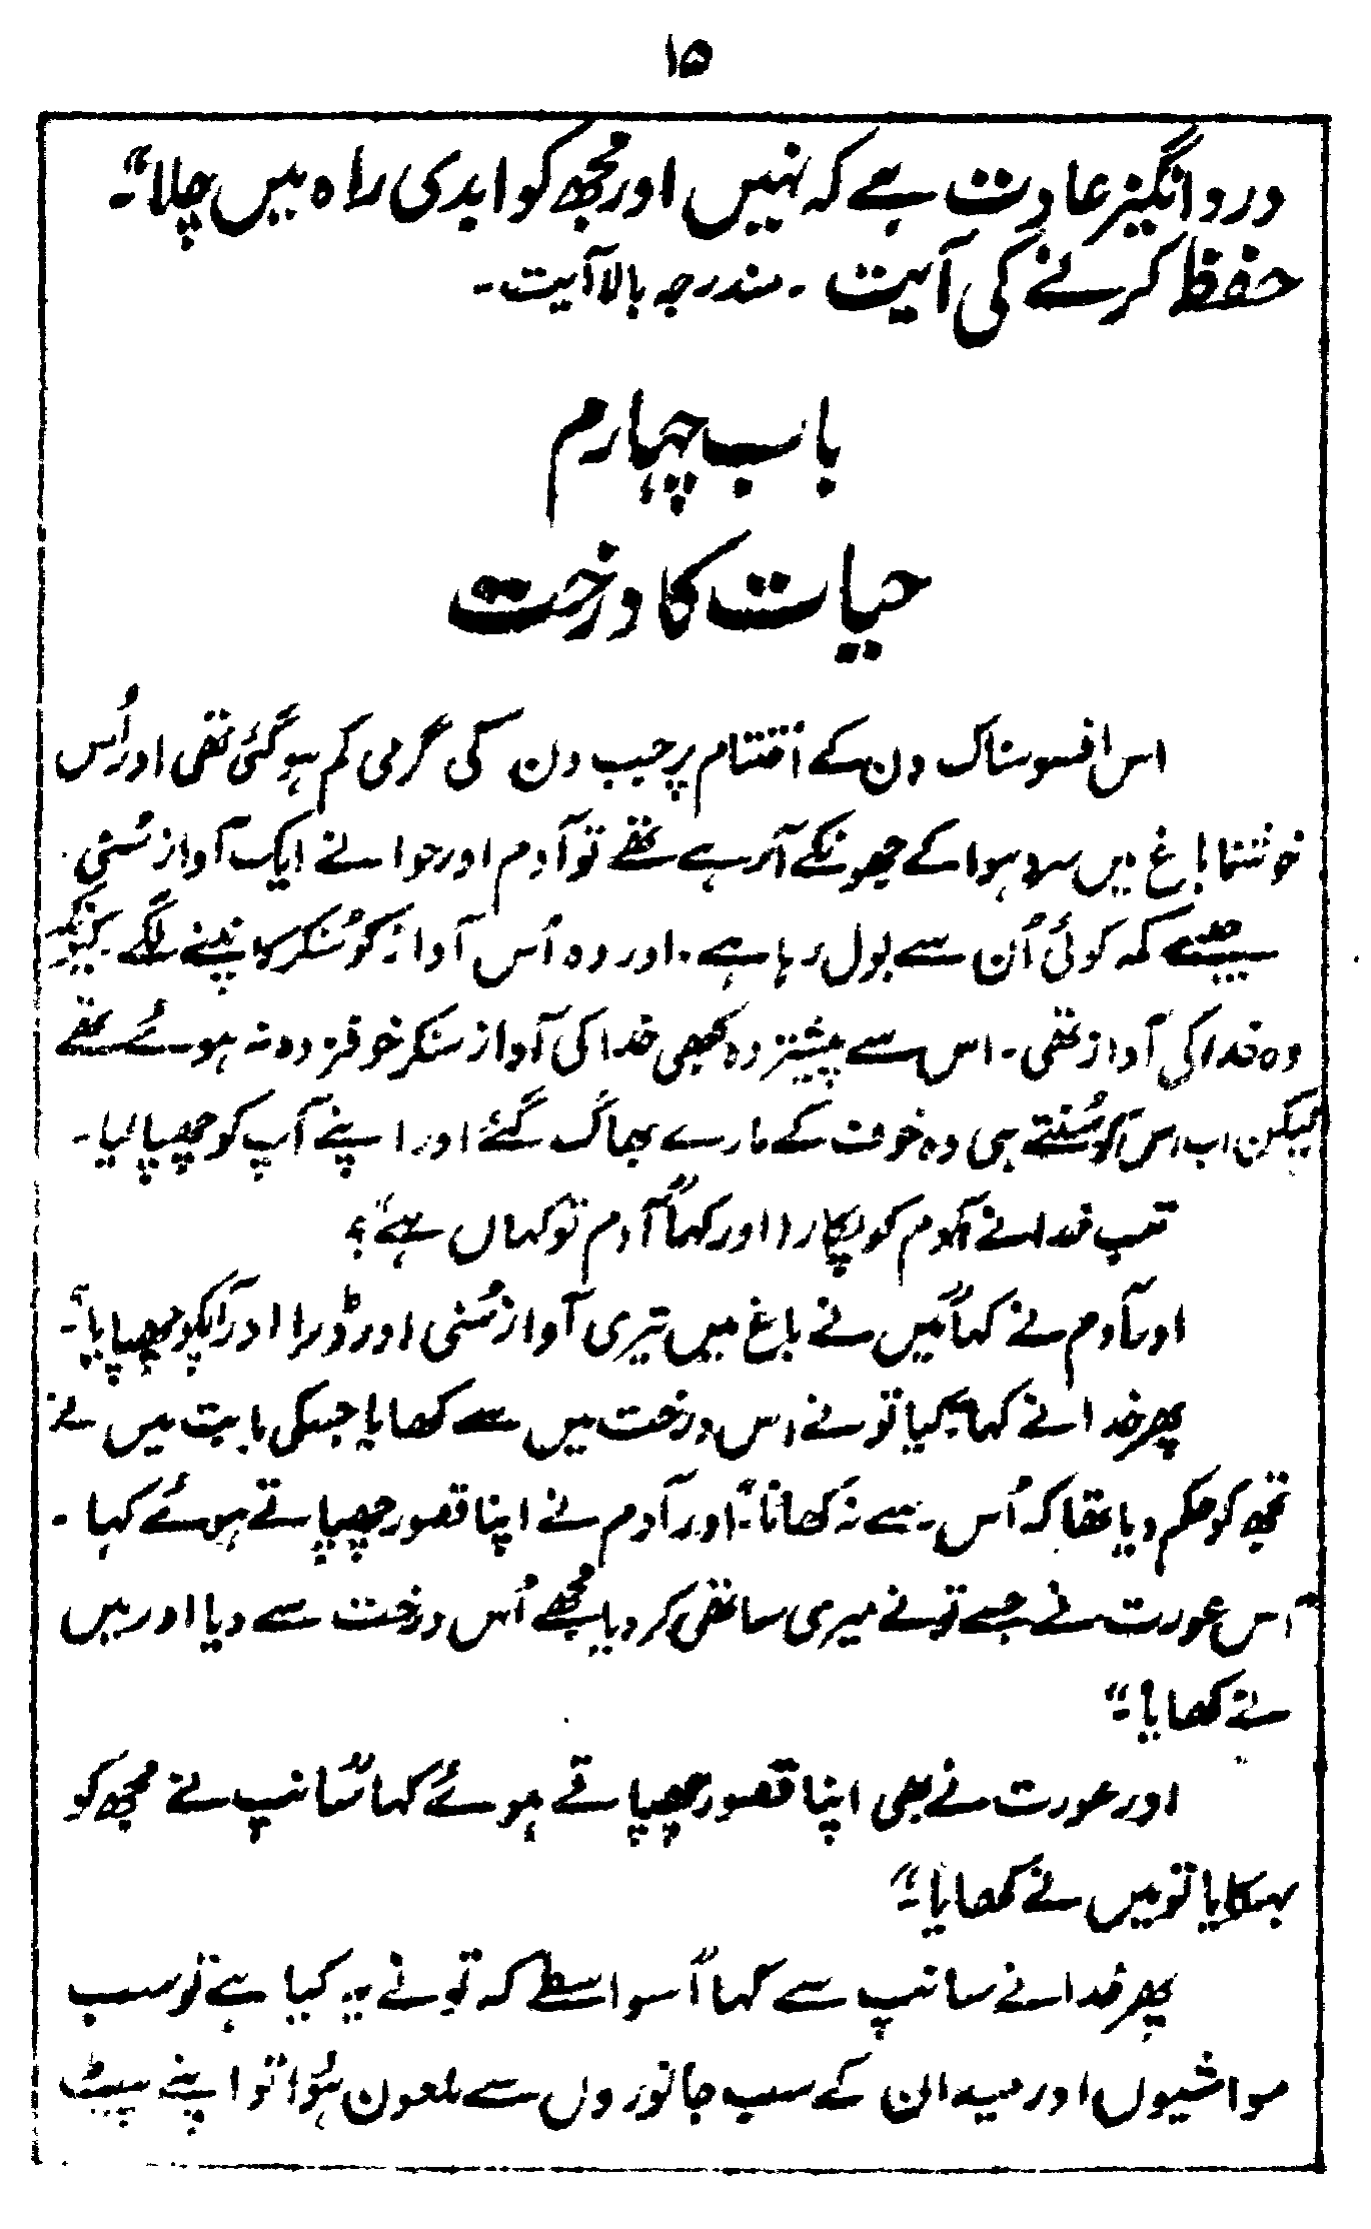 ۱۵
درد انگیز عادت ہے کہ نہیں اور مجھ کو ابدی راہ میں چلا"۔
حفظ کرنے کی آیت ۔ مندرجہ بالا آیت۔
باب چہارم
حیات کا درخت
اس افسوسناک دن کے اختتام پر جب دن کی گرمی کم ہو گئی تھی اور اُس
خوشنما باغ میں سرد ہوا کے جھونکے آ رہے تھے تو آدم اور حوا نے ایک آواز سُنی۔
جیسے کہ کوئی اُن سے بول رہا ہے۔ اور وہ اُس آواز کو سُنکر کانپنے لگے کیونکہ
وہ خدا کی آواز تھی۔ اس سے پیشتر وہ کبھی خدا کی آواز سنکر خوفزدہ نہ ہوئے تھے
لیکن اب اس کو سُنتے ہی وہ خوف کے مارے بھاگ گئے اور اپنے آپ کو چھپا لیا۔
تب خدا نے آدم کو پکارا اور کہا "آدم تو کہاں ہے"؟
اور آدم نے کہا "میں نے باغ میں تیری آواز سُنی اور ڈرا اور آپکو چھپایا"۔
پھر خدا نے کہا "کیا تو نے اس درخت میں سے کھایا جسکی بابت میں نے
تجھ کو حکم دیا تھا کہ اُس سے نہ کھانا"۔ اور آدم نے اپنا قصور چھپاتے ہوئے کہا۔
"اس عورت نے جسے تو نے میری ساتھی کر دیا مجھے اُس درخت سے دیا اور میں
نے کھایا۔"
اور عورت نے بھی اپنا قصور چھپاتے ہوئے کہا "سانپ نے مجھ کو
بہکایا تو میں نے کھایا۔"
پھر خدا نے سانپ سے کہا "اسواسطے کہ تو نے یہ کیا ہے تو سب
مواشیوں اور میدان کے سب جانوروں سے ملعون ہُوا تو اپنے پیٹ